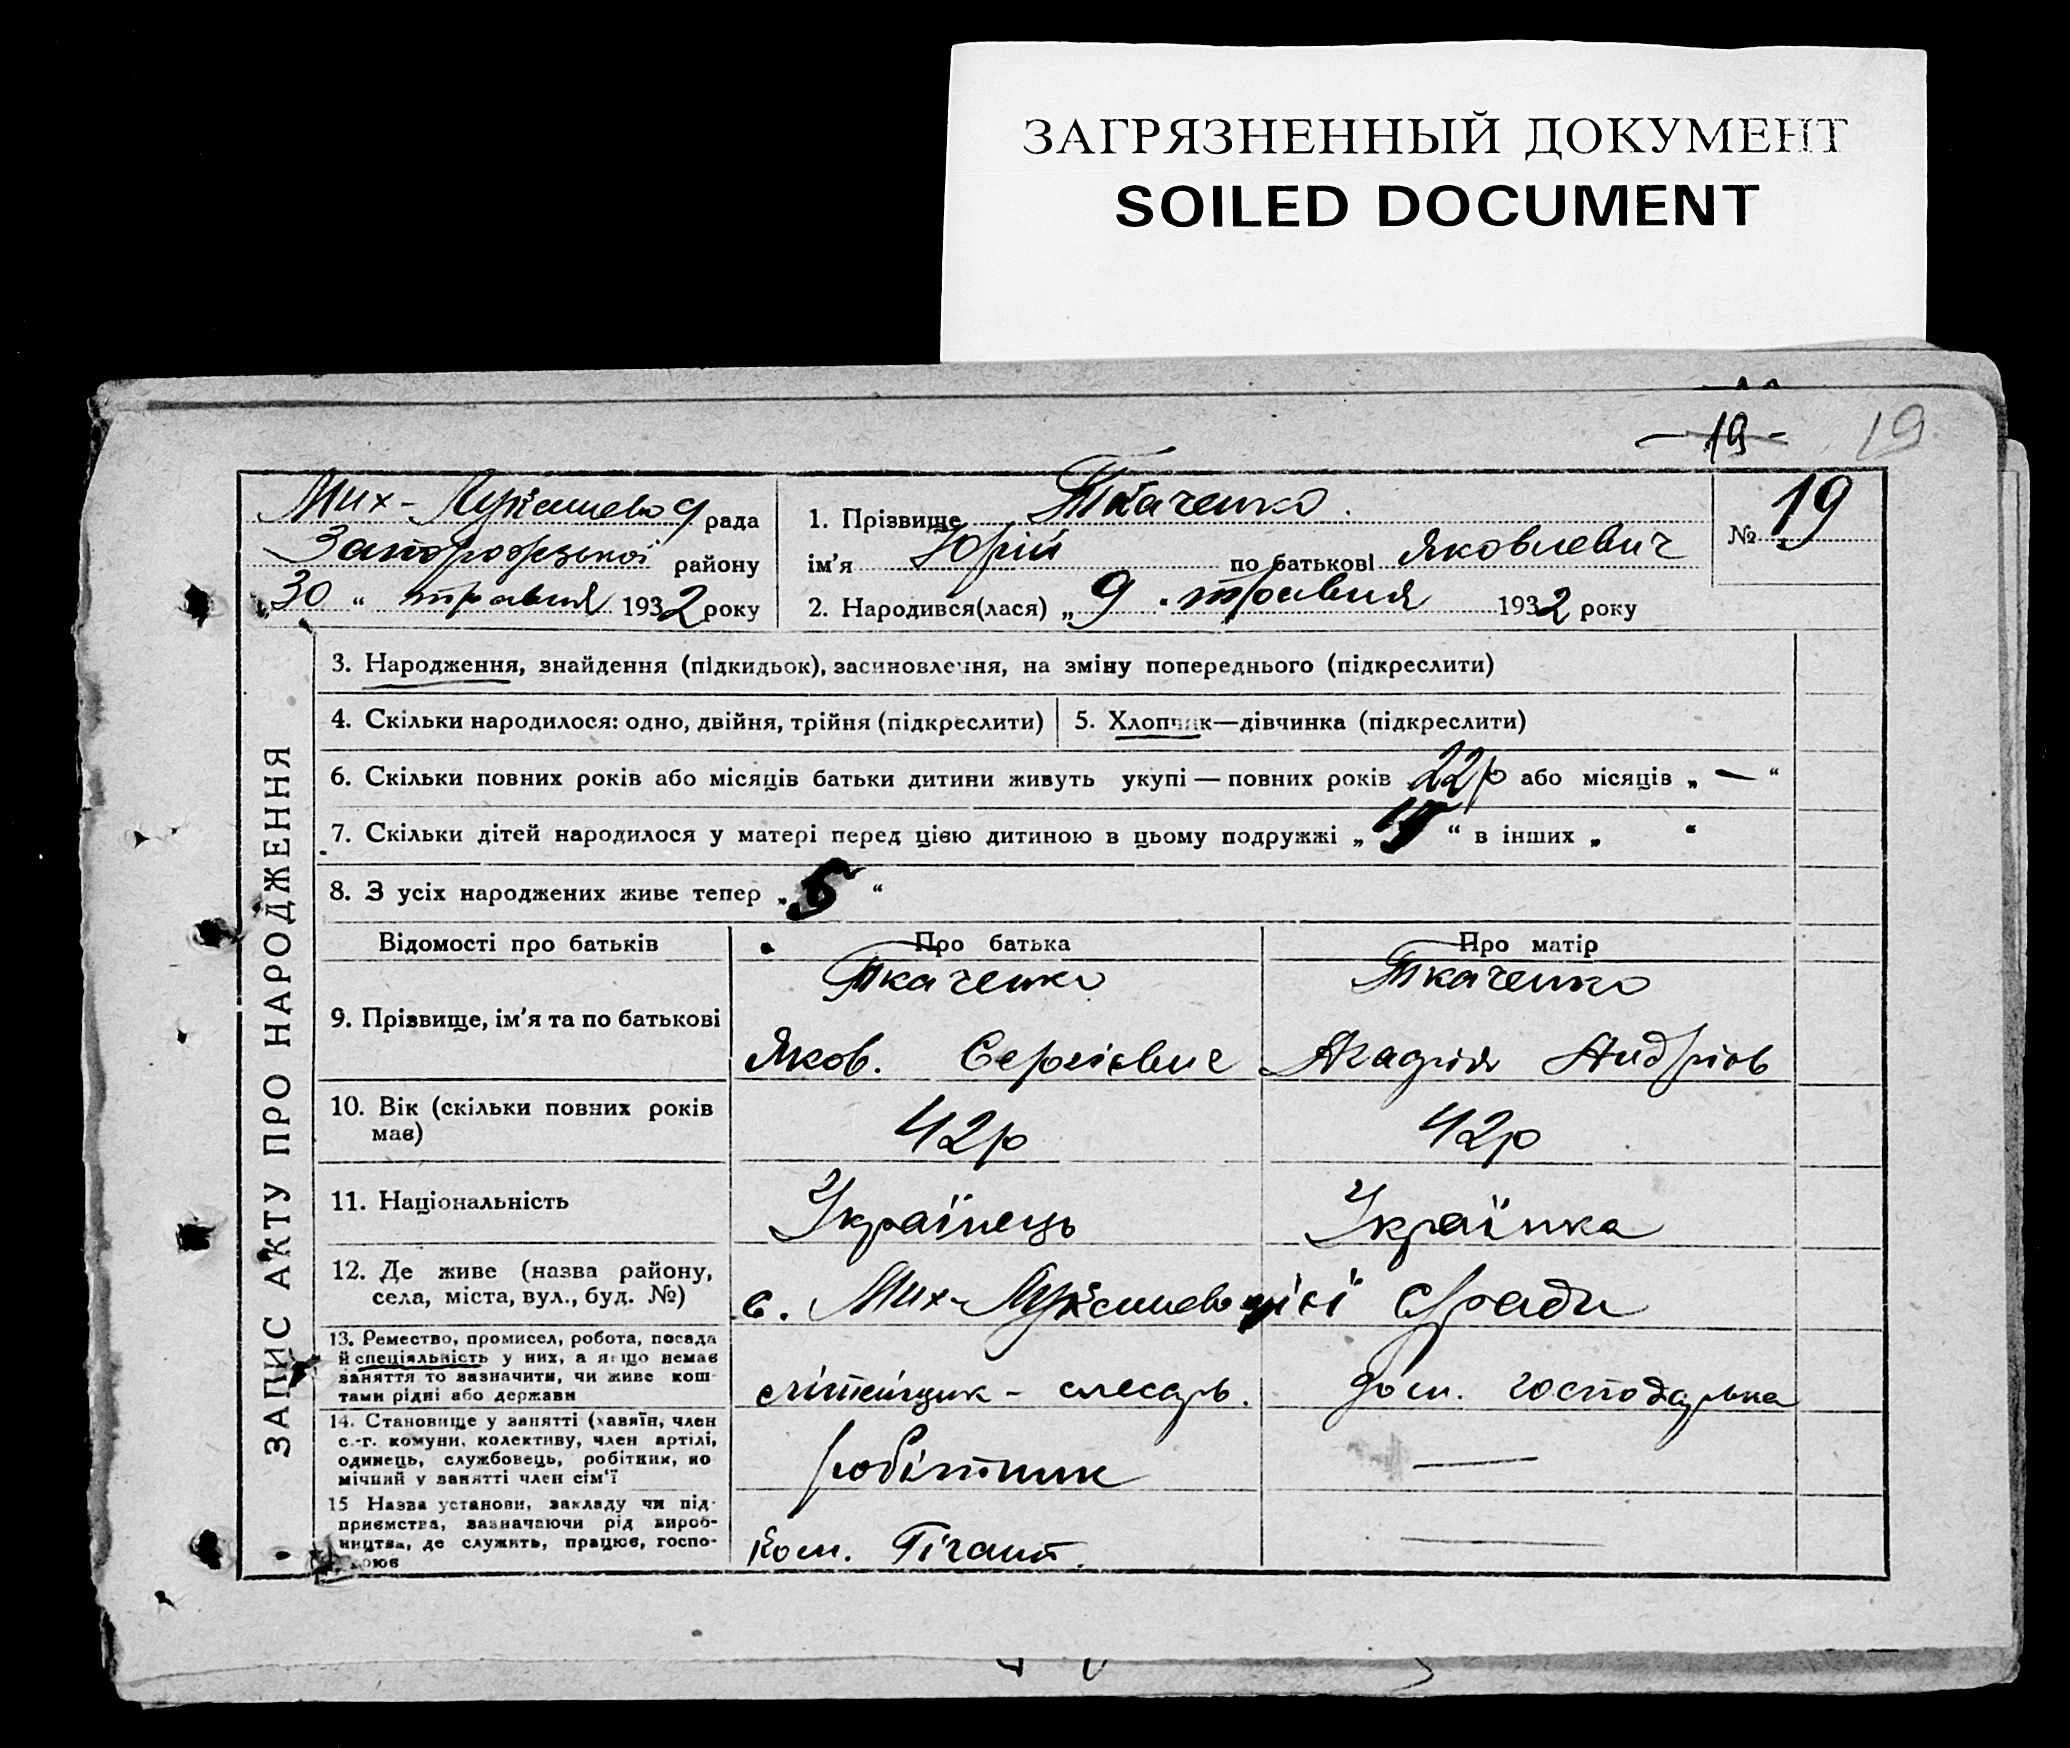 ЗАГРЯЗНЕННЫЙ ДОКУМЕНТ
SOILED DOCUMENT
— 19 -
19
Мих-Лукашево рада
Запорожської району
„30 “ травня 1932 року
1. Прізвище Ткаченко.
ім'я Юрій по батькові Яковлевич
2. Народився(лася) „ 9 . травня 1932 року
№ 19
ЗАПИС АКТУ ПРО НАРОДЖЕННЯ
3. Народження, знайдення (підкидьок), засиновлення, на зміну попереднього (підкреслити)
4. Скільки народилося: одно, двійня, трійня (підкреслити)
5. Хлопчик—дівчинка (підкреслити)
6. Скільки повних років або місяців батьки дитини живуть укупі — повних років 22 р або місяців „ — “
7. Скільки дітей народилося у матері перед цією дитиною в цьому подружжі „ “ в інших „ “
8. З усіх народжених живе тепер „ 5 “
Відомості про батьків
Про батька
Про матір
9. Прізвище, ім'я та по батькові
Ткаченко
Яков. Сергієвич
Ткаченко
Андріов
10. Вік (скільки повних років
має)
42р
42р
11. Національність
Українець
Українка
12. Де живе (назва району,
села, міста, вул., буд. №)
с. Мих-Лукашево с/ради
13. Ремество, промисел, робота, посада
й спеціяльність у них, а якщо немає
заняття то зазначити, чи живе кош-
тами рідні або держави
літейщик - слесарь.
дом. господарька
14. Становище у занятті (хазяїн, член
с.-г. комуни, колективу, член артілі,
одинець, службовець, робітник, по
мічний у занятті член сім'ї
робітник
—
15 Назва установи, закладу чи під-
приємства, зазначаючи рід вироб-
ництва, де служить, працює, госпо-
рює
Ком. Гігант.
—